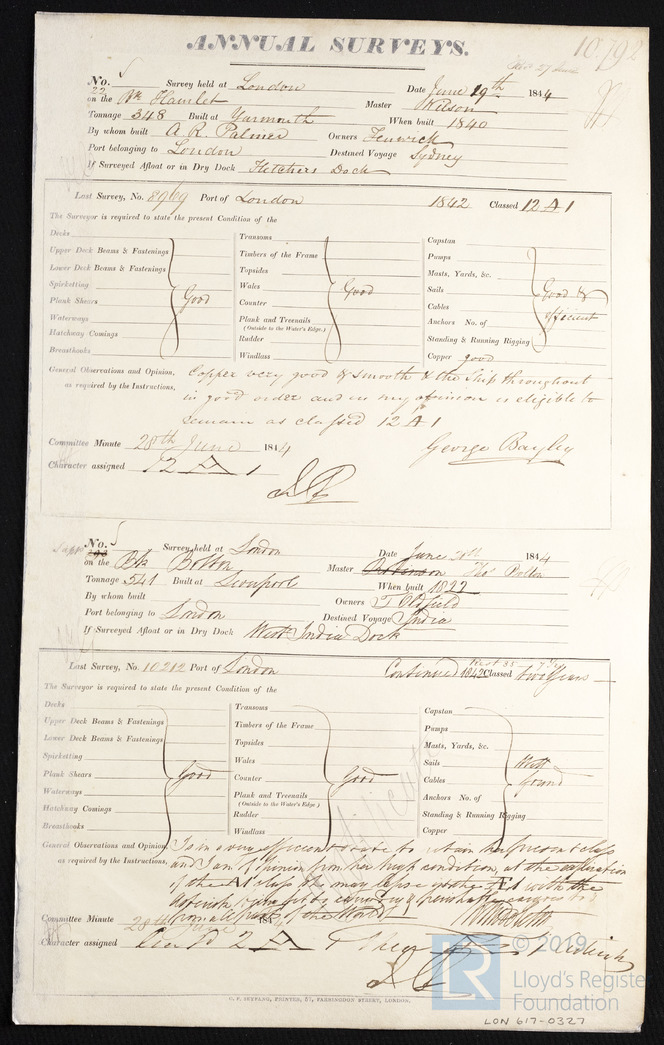 10792
ANNUAL SURVEYS.
No. 22 Survey held at London Date June 19th 1844
on the Bk Hamlet Master Wilson
Tonnage 348 Built at Yarmouth When built 1840
By whom built A R. Palmer Owners Fenwick
Port belonging to London Destined Voyage Sydney
If Surveyed Afloat or in Dry Dock Fletchers Dock
Last Survey, No. 8969 Port of London 1842 Classed 12 A 1
The Surveyor is required to state the present Condition of the
Decks
Upper Deck Beams & Fastenings
Lower Deck Beams & Fastenings
Spirketting
Plank Shears Good
Waterways
Hatchway Comings
Breasthooks
Transoms
Timbers of the Frame
Topsides
Wales Good
Counter
Plank and Treenails
(Outside to the Water's Edge.)
Rudder
Windlass
Capstan
Pumps
Masts, Yards, &c.
Sails Good &
Cables efficient
Anchors No. of
Standing & Running Rigging
Copper good
General Observations and Opinion, Copper very good & smooth & the Ship throughout
as required by the Instructions, in good order and in my opinion is eligible to
remain as classed 12 A 1
Committee Minute 28th June 1844 George Bayley
Character assigned 12 A 1
No. Survey held at London Date June 1844
on the Bk Bolton Master Robinson Thos Bolton
Tonnage 541 Built at Liverpool When built 1822
By whom built Owners T Oldfield
Port belonging to London Destined Voyage India
If Surveyed Afloat or in Dry Dock West India Dock
Last Survey, No. 10212 Port of London Continued 1842 Classed two Years
The Surveyor is required to state the present Condition of the
Decks
Upper Deck Beams & Fastenings
Lower Deck Beams & Fastenings
Spirketting
Plank Shears Good
Waterways
Hatchway Comings
Breasthooks
Transoms
Timbers of the Frame
Topsides
Wales
Counter Good
Plank and Treenails
(Outside to the Water's Edge.)
Rudder
Windlass
Capstan
Pumps
Masts, Yards, &c.
Sails Well
Cables found
Anchors No. of
Standing & Running Rigging
Copper
General Observations and Opinion, Is in a very efficient state to retain her present class
as required by the Instructions, and I am of opinion from her high condition, at the expiration
of the A1 class she may with the
of the World
Committee Minute 28th June 1844
Character assigned 2 A
G. F. SUFFANO, PRINTER, 67, FARRINGDON STREET, LONDON.
© 2019
LR Lloyd's Register
Foundation
LON 617-0327